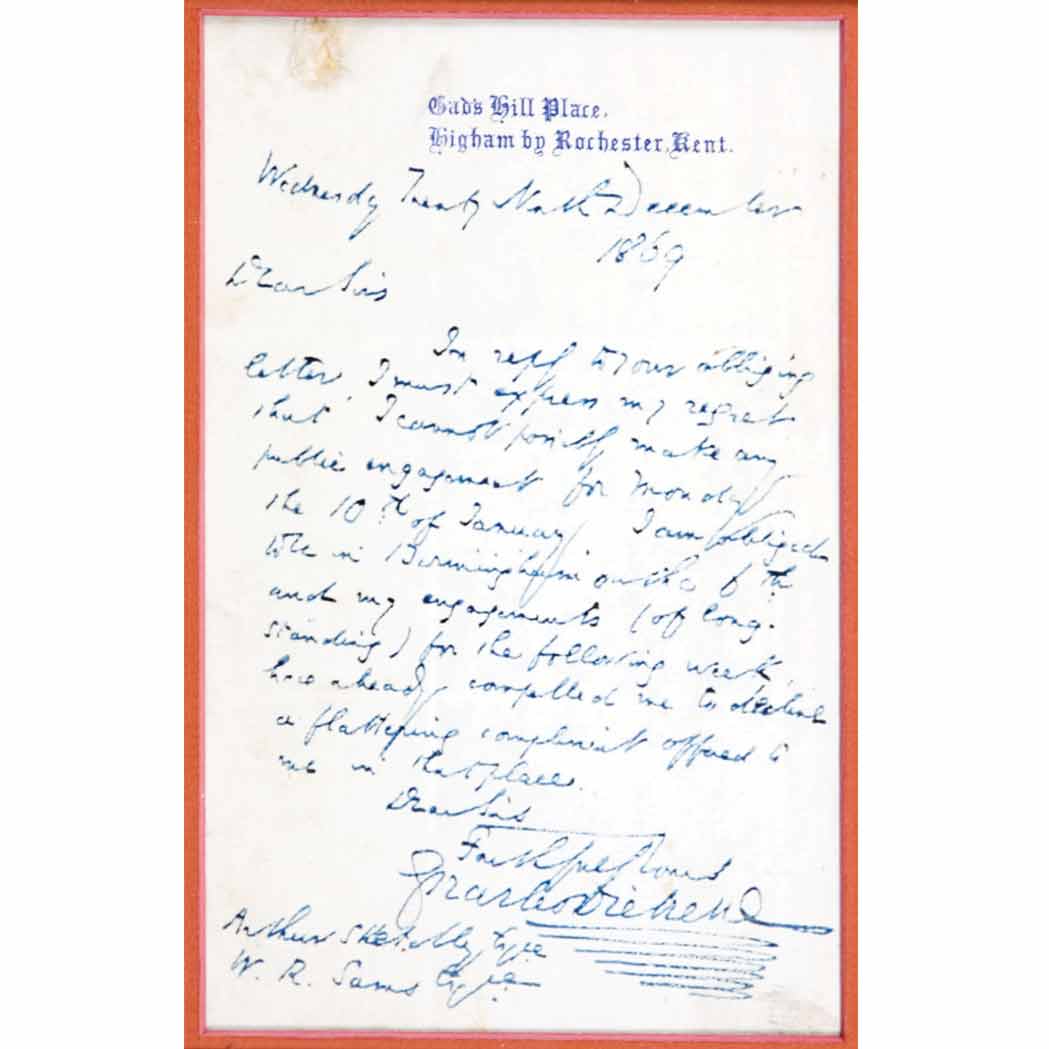 Gad's Hill Place,
Higham by Rochester, Kent.
Wednesday Twenty Ninth December
1869
Dear Sirs
In reply to your obliging
letter, I must express my regret
that I cannot possibly make any
public engagement for Monday
the 10th of January. I am obliged
to be in Birmingham on the 6th
and my engagements (of long-
standing) for the following week,
have already compelled me to decline
a flattering compliment offered to
me in that place.
Dear Sirs
Faithfully Yours
Charles Dickens
Arthur Sketchley Esqre
W. R. Sams Esqre